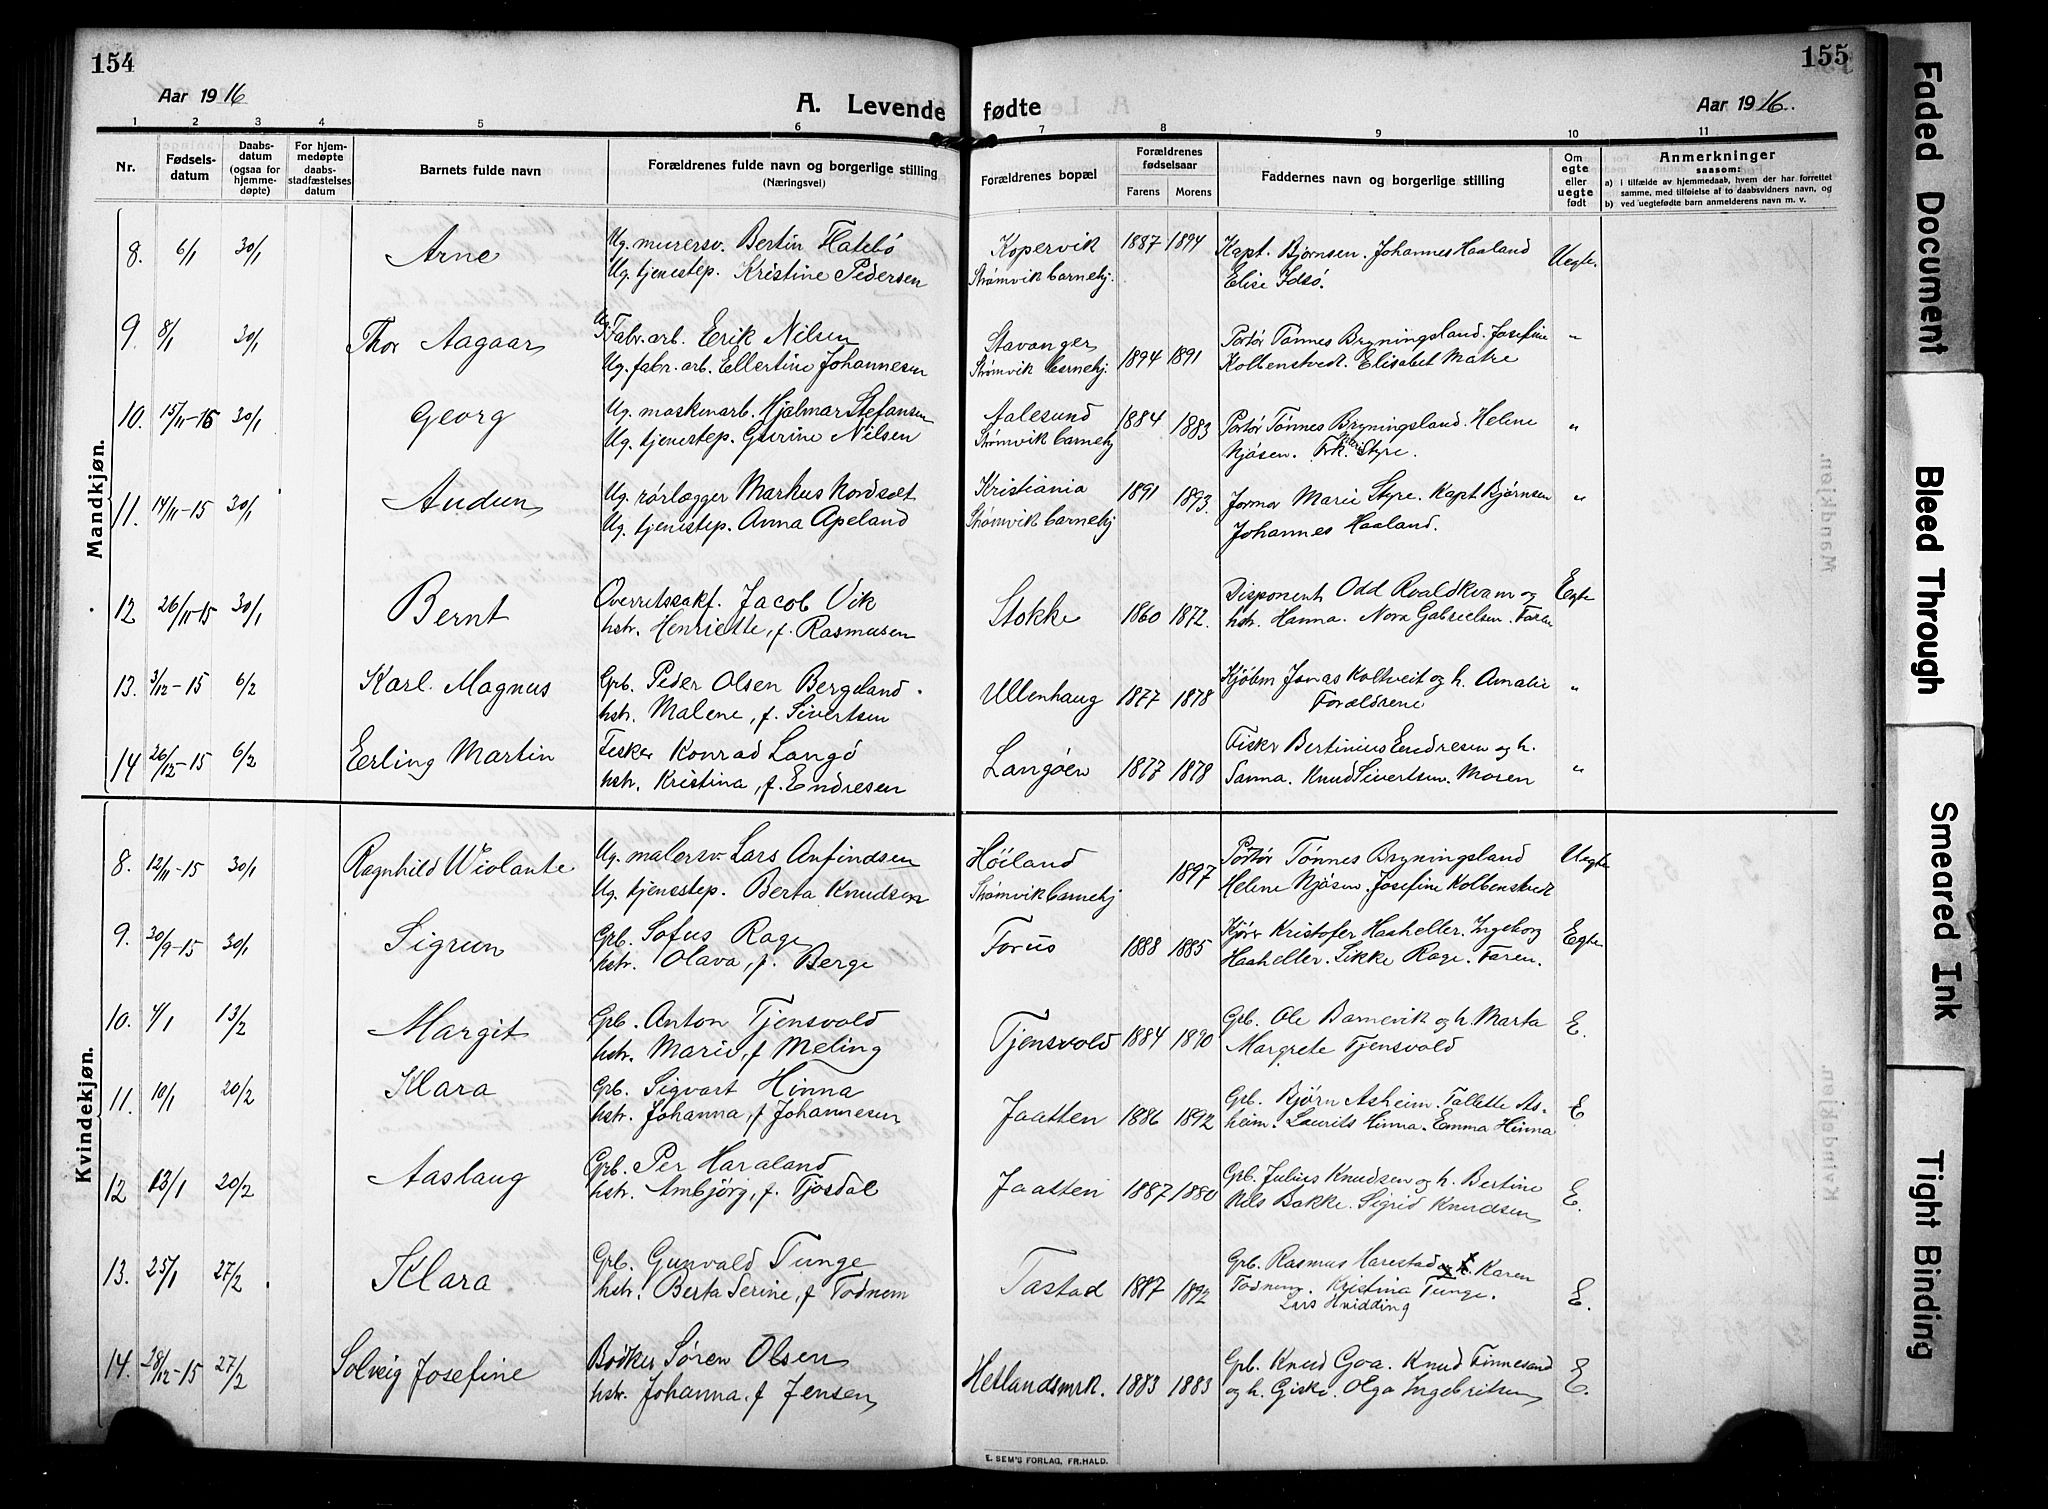 154
155
Aar 1916
A. Levende fødte
Aar 1916.
1 2 3 4 5 6 7 8 9 10 11
Nr.
Fødsels-
datum
Daabs-
datum
(ogsaa for
hjemme-
døpte)
For hjem-
medøpte
daabs-
stadfæstelses
datum
Barnets fulde navn
Forældrenes fulde navn og borgerlige stilling
(Næringsvei)
Forældrenes bopæl
Forældrenes
fødselsaar
Farens Morens
Faddernes navn og borgerlige stilling
Om
egte
eller
uegte
født
Anmerkninger
saasom:
a) i tilfælde av hjemmedaab, hvem der har forrettet
samme, med tilføielse af to daabsvidners navn, og
b) ved uegtefødte barn anmelderens navn m. v.
Mandkjøn.
8. 6/1 30/1 Arne
Ug. murersv. Bertin Flatebö
Ug. tjenestep. Kristine Pedersen
Kopervik
Strømvik barnehj.
1887 1894
Kapt. Bjørnsen. Johannes Haaland
Elise Idsö.
Uegte.
9. 8/1 30/1 Thor Aagaar
Ug. Fabr. arb. Erik Nilsen
Ug. fabr. arb. Ellertine Johannesen
Stavanger
Strømvik barnehj.
1894 1891
Portör Tönnes Bryningsland. Josefine
Kolbenstvedt. Elisabet Matre
"
10. 15/11-15 30/1 Georg
Ug. maskinarb. Hjalmar Stefansen
Ug. tjenestep. Gurine Nilsen
Aalesund
Strømvik barnehj
1884 1883
Portör Tönnes Bryningsland. Helene
Njåsen. Frk. Styre.
"
11. 14/11-15 30/1 Audun
Ug. rörlægger Markus Nordsolt
Ug. tjenestep. Anna Apeland
Kristiania
Strømvik barnehj
1891 1893.
Jormor Marie Styre. Kapt. Bjørnsen
Johannes Haaland.
"
12 26/11-15 30/1 Bernt
Overretssakf. Jacob Vik
hstr. Henriette, f. Rasmusen
Stokke
1860 1872.
Disponent Odd Roaldkvam og
hstr. Hanna. Nora Gabrielsen. Faren
Egte
13. 3/12-15 6/2 Karl Magnus
Grb. Peder Olsen Bergeland
hstr. Malene, f. Sivertsen
Ullenhaug 1877 1878
Kjöbm. Jonas Koltveit og h. Amalie
Forældrene
"
14 26/12-15 6/2 Erling Martin
Fisker Konrad Langö
hstr. Kristina, f. Endresen
Langöen 1877 1878
Fisker Bertinius Endresen og h.
Sanna. Knud Sivertsen. Moren
"
Kvindekjøn.
8. 12/11-15 30/1 Ragnhild Wiolante
Ug. malersv. Lars Anfindsen
Ug. tjenestep. Berta Knudsen
Höiland
Strømvik barnehj
1897
Portör Tönnes Bryningsland
Helene Njåsen. Josefine Kolbenstvedt
Uegte
9. 30/9-15 30/1 Sigrun
Grb. Sofus Rage
hstr. Olava, f. Berge
Forus 1888 1885
Kjörer Kristofer Haaheller. Ingeborg
Haaheller. Sikke Rage. Faren.
Egte
10. 4/1 13/2 Margit
Grb. Anton Tjensvold
hstr. Marie, f Meling
Tjensvold 1884 1890
Grb. Ole Barnevik og h. Marta
Margrete Tjensvold
E.
11. 10/1 20/2 Klara
Grb. Sigvart Hinna
hstr. Johanna, f Johannesen
Jaatten 1886 1892
Grb. Björn Asheim. Tallette As-
heim. Laurits Hinna. Emma Hinna
E.
12 13/1 20/2 Aaslaug
Grb. Per Haraland
hstr. Ambjörg, f. Tjosdal
Jaatten 1887 1880
Grb. Julius Knudsen og h. Bertine
Nils Bakke. Sigrid Knudsen
E.
13. 25/1 27/2 Klara
Grb. Gunvald Tunge
hstr. Berta Serine, f Todnem
Tastad 1887 1892
Grb. Rasmus Harestad og h. Karen
Todnem. Kristina Tunge.
Lars Hvidding
E.
14. 28/12-15 27/2 Solveig Josefine
Bödker Sören Olsen
hstr. Johanna, f Jensen
Hetlandsmrk. 1883 1883
Grb. Knud Goa. Knud Finnesand
og h. Giske. Olga Ingebritsen
E.
E. SEM'S FORLAG, FR.HALD.
Faded Document
Bleed Through
Smeared Ink
Tight Binding